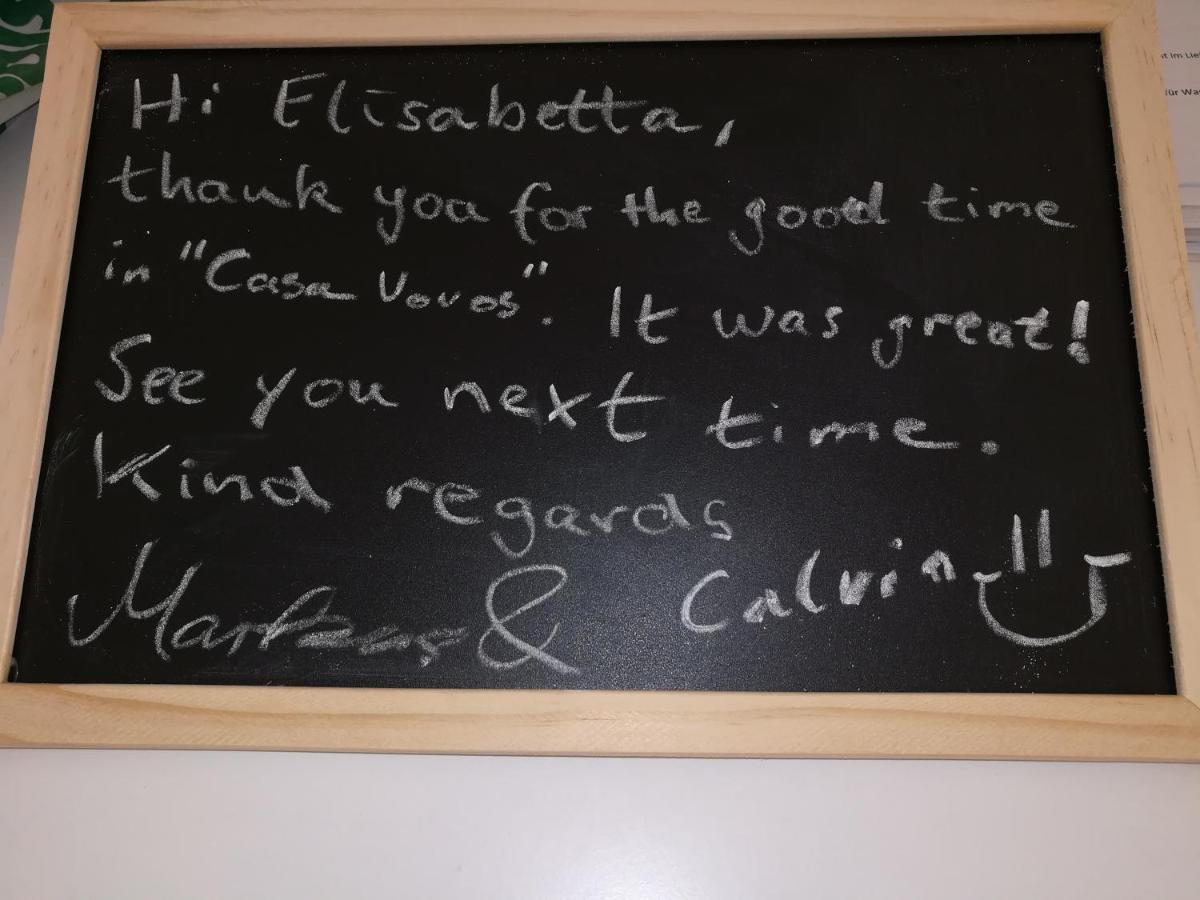 Hi Elisabetta,
thank you for the good time
in "Casa Vovos". It was great!
See you next time.
Kind regards
& Calvin
für